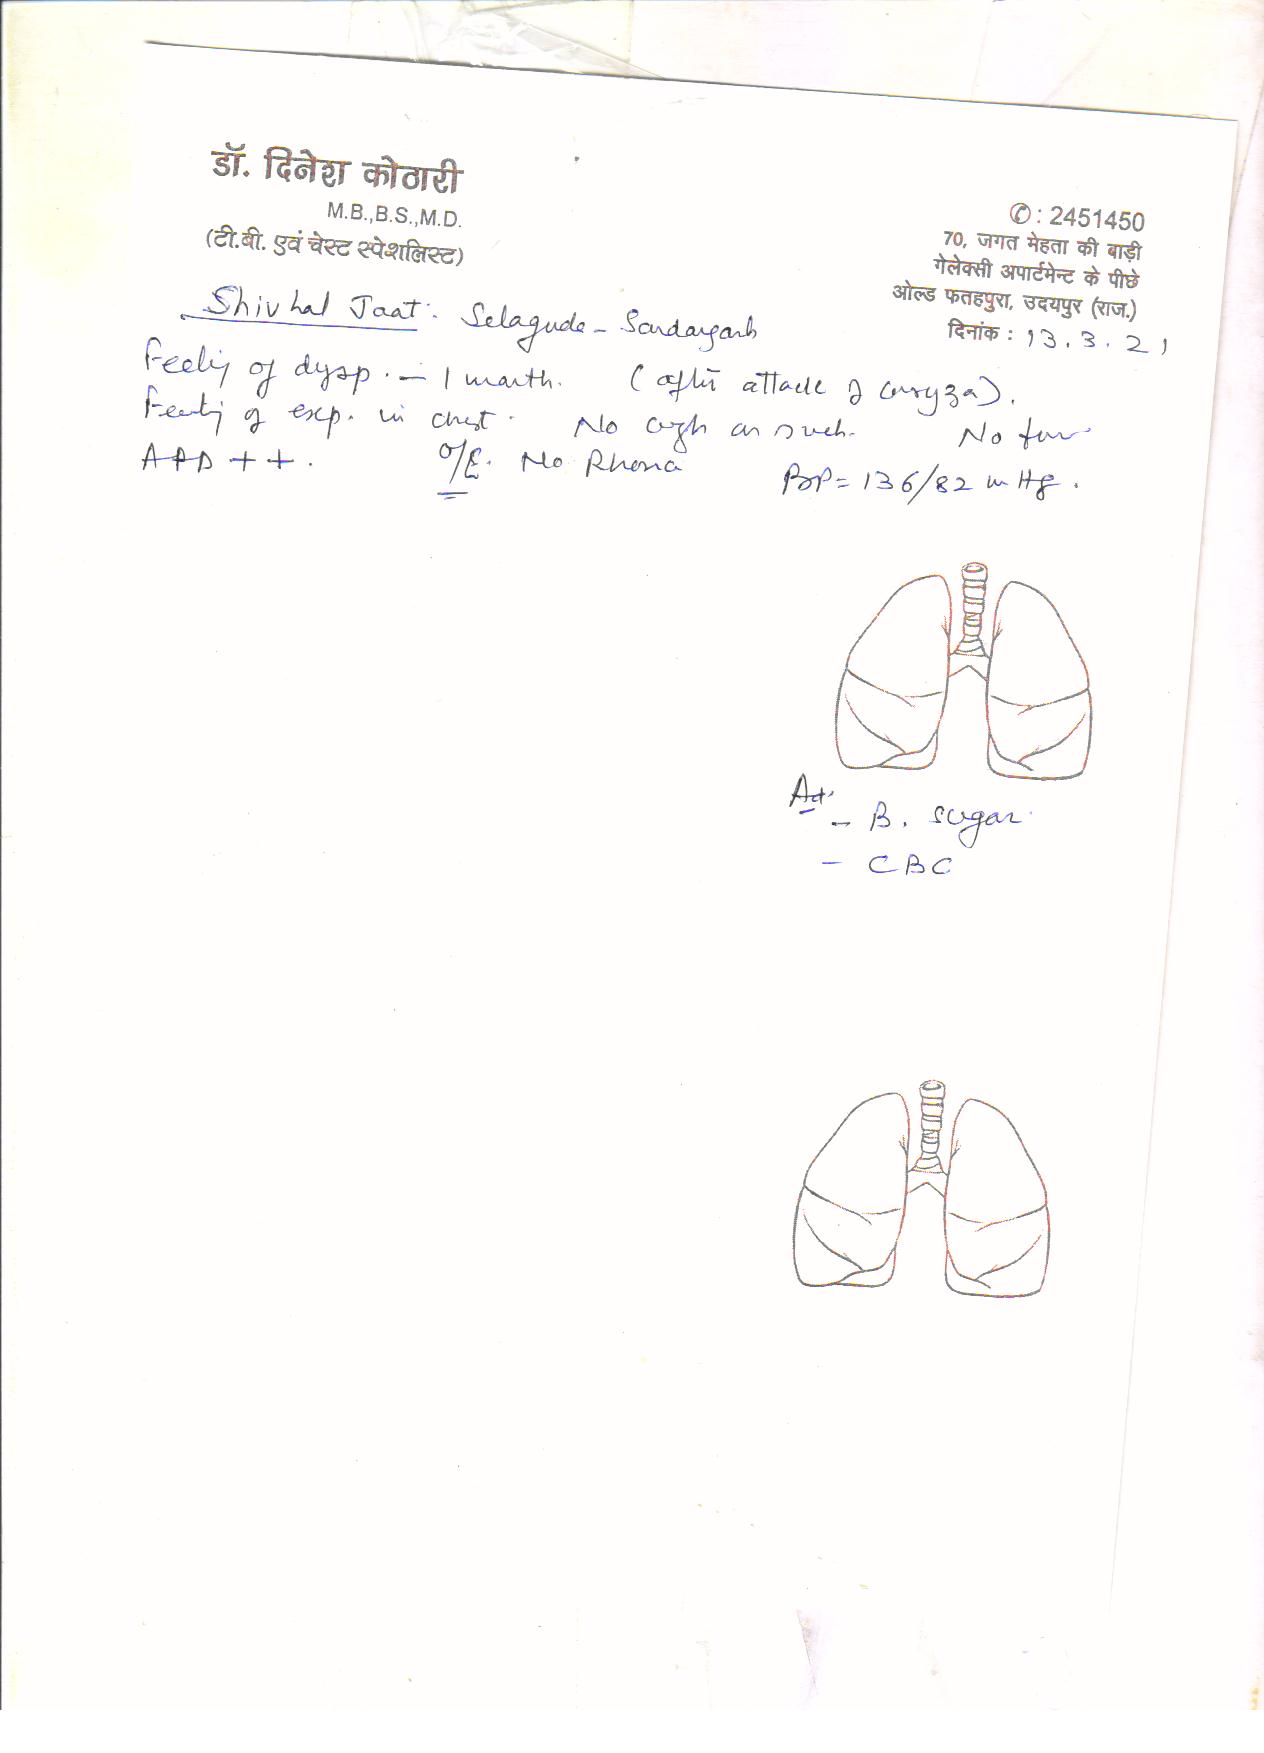 डॉ. दिनेश कोठारी
M.B.,B.S.,M.D.
(टी.बी. एवं चेस्ट स्पेशलिस्ट)
✆: 2451450
70, जगत मेहता की बाड़ी
गेलेक्सी अपार्टमेन्ट के पीछे
ओल्ड फतहपुरा, उदयपुर (राज.)
दिनांक : 13.3.21
Jaat.
of dysp. – 1 month. (after attack of coryza).
of exp. in chest. No cough as such. No
APD ++. O/E. No BP = 136/82 mHg.
Ad.
– B. sugar
– CBC